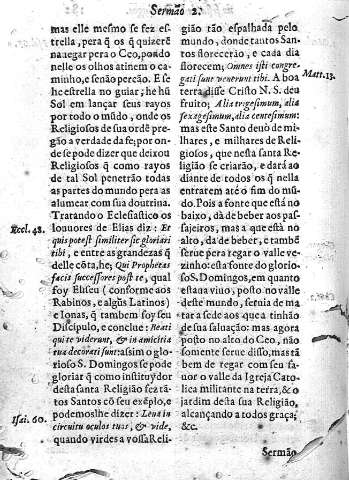 Sermão 2.
mas elle mesmo se fez es-
trella, pera q̃ os q̃ quizerẽ
nauegar pera o Ceo, pondo
nelle os olhos atinem o ca-
minho, e se não percão. E se
he estrella no guiar; he hũ
Sol em lançar seus rayos
por todo o mũdo, onde os
Religiosos de sua ordẽ pre-
gão a verdade da fè; por on-
de se pode dizer que deixou
Religiosos q̃ como rayos
de tal Sol penetrão todas
as partes do mundo pera as
alumear com sua doutrina.
Tratando o Eclesiastico os
Eccl. 48.
louuores de Elias diz: Et
quis potest similiter sic gloriari
tibi, e entre as grandezas q̃
delle cõta, he; Qui Prophetas
facis successores post te, qual
foy Eliseu (conforme aos
Rabinos, e algũs Latinos)
e Ionas, q̃ tambem foy seu
Discipulo, e conclue: Beati
qui te viderunt, & in amicitia
tua decorati sunt: assim o glo-
rioso S. Domingos se pode
gloriar q̃ como instituydor
desta santa Religião fez tã-
tos Santos cõ seu exẽplo, e
podemoslhe dizer: Leua in
Isai. 60.
circuitu oculos tuos, & vide,
quando virdes a vossa Reli-
gião tão espalhada pelo
mundo, donde tantos San-
tos florecerão, e cada dia
florecem; Omnes isti congre-
gati sunt venerunt tibi. A boa
Matt. 13.
terra disse Cristo N. S. deu
fruito; Alia trigesimum, alia
sexagesimum, alia centesimum:
mas este Santo deuò de mi-
lhares, e milhares de Reli-
giosos, que nesta santa Re-
ligião se criarão, e dará ao
diante de todos os q̃ nella
entrarem até o fim do mũ-
do. Pois a fonte que está no
baixo, dà de beber aos pas-
sajeiros, mas a que està no
alto, dà de beber, e tambẽ
serue pera regar o valle ve-
zinho: esta fonte do glorio-
so S. Domingos, em quanto
estaua viuo, posto no valle
deste mundo, seruia de ma-
tar a sede aos que a tinhão
de sua saluação: mas agora
posto no alto do Ceo, não
somente serue disso, mas tã
bem de regar com seu fa-
uor o valle da Igreja Cato-
lica militante na terra, & o
jardim desta sua Religião,
alcançando a todos graça,
&c.
Sermão